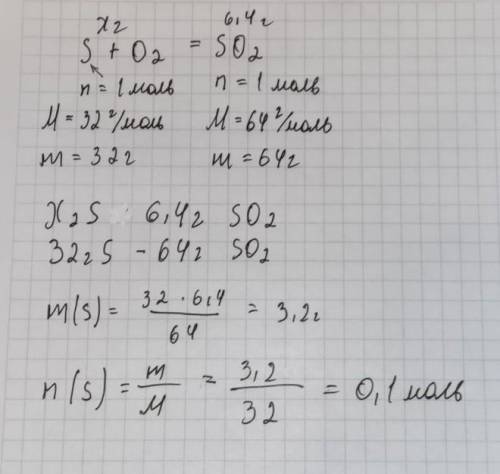 x г 6,4 г
S + O2 = SO2
n = 1 моль n = 1 моль
M = 32 г/моль M = 64 г/моль
m = 32 г m = 64 г
x г S 6,4 г SO2
32 г S - 64 г SO2
m(s) = 32 · 6,4 / 64 = 3,2 г
n(s) = m / M = 3,2 / 32 = 0,1 моль